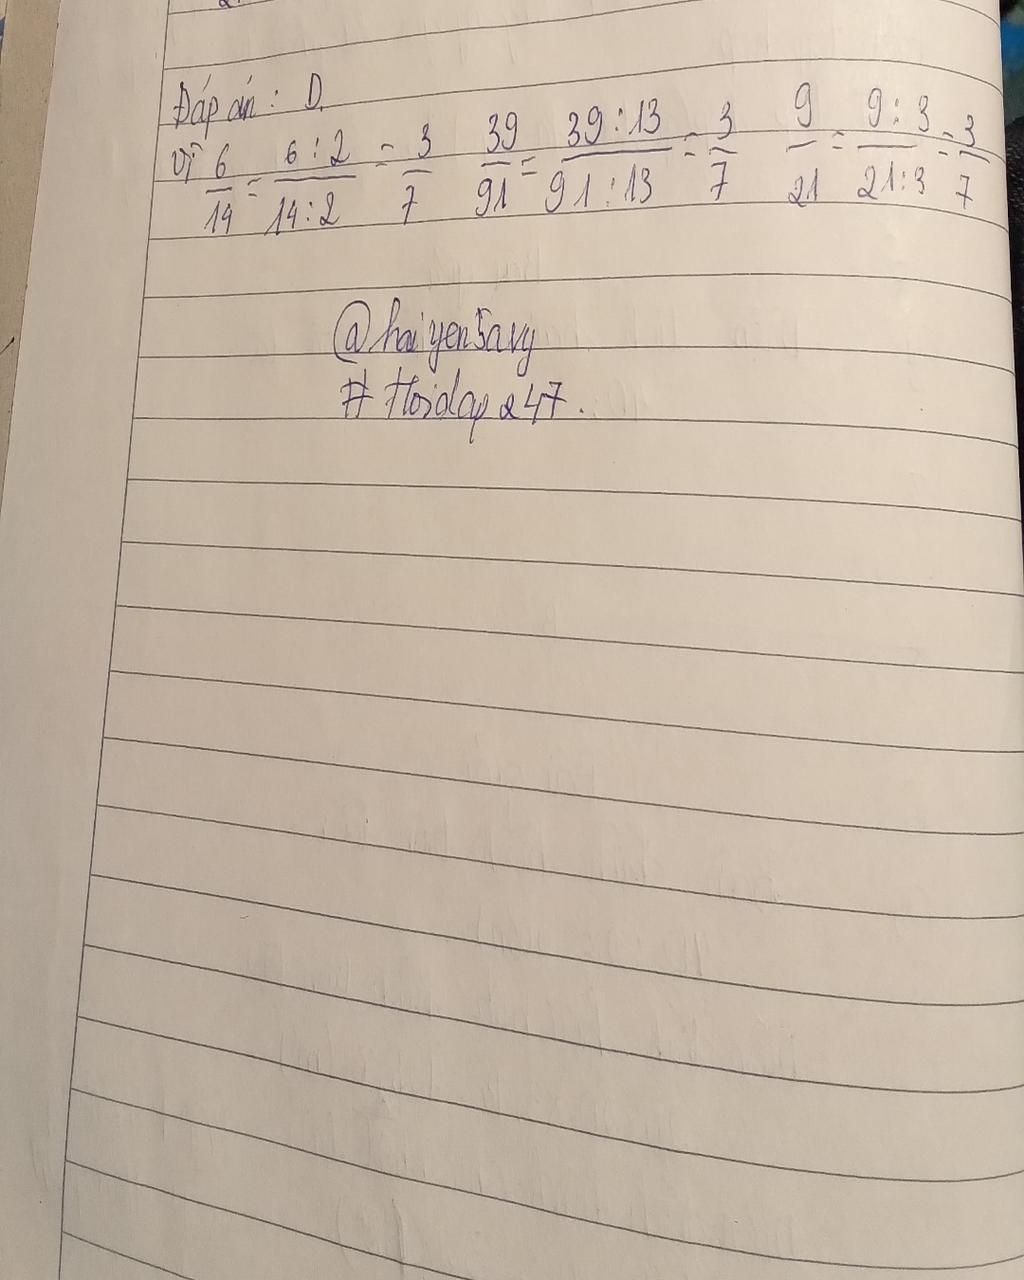 Đáp án : D.
Vì 6/14 = 6 : 2/14 : 2 = 3/7 39/91 = 39 : 13/91 : 13 = 3/7 9/21 = 9 : 3/21 : 3 = 3/7
@haiyen5avy
# Hoidap247.